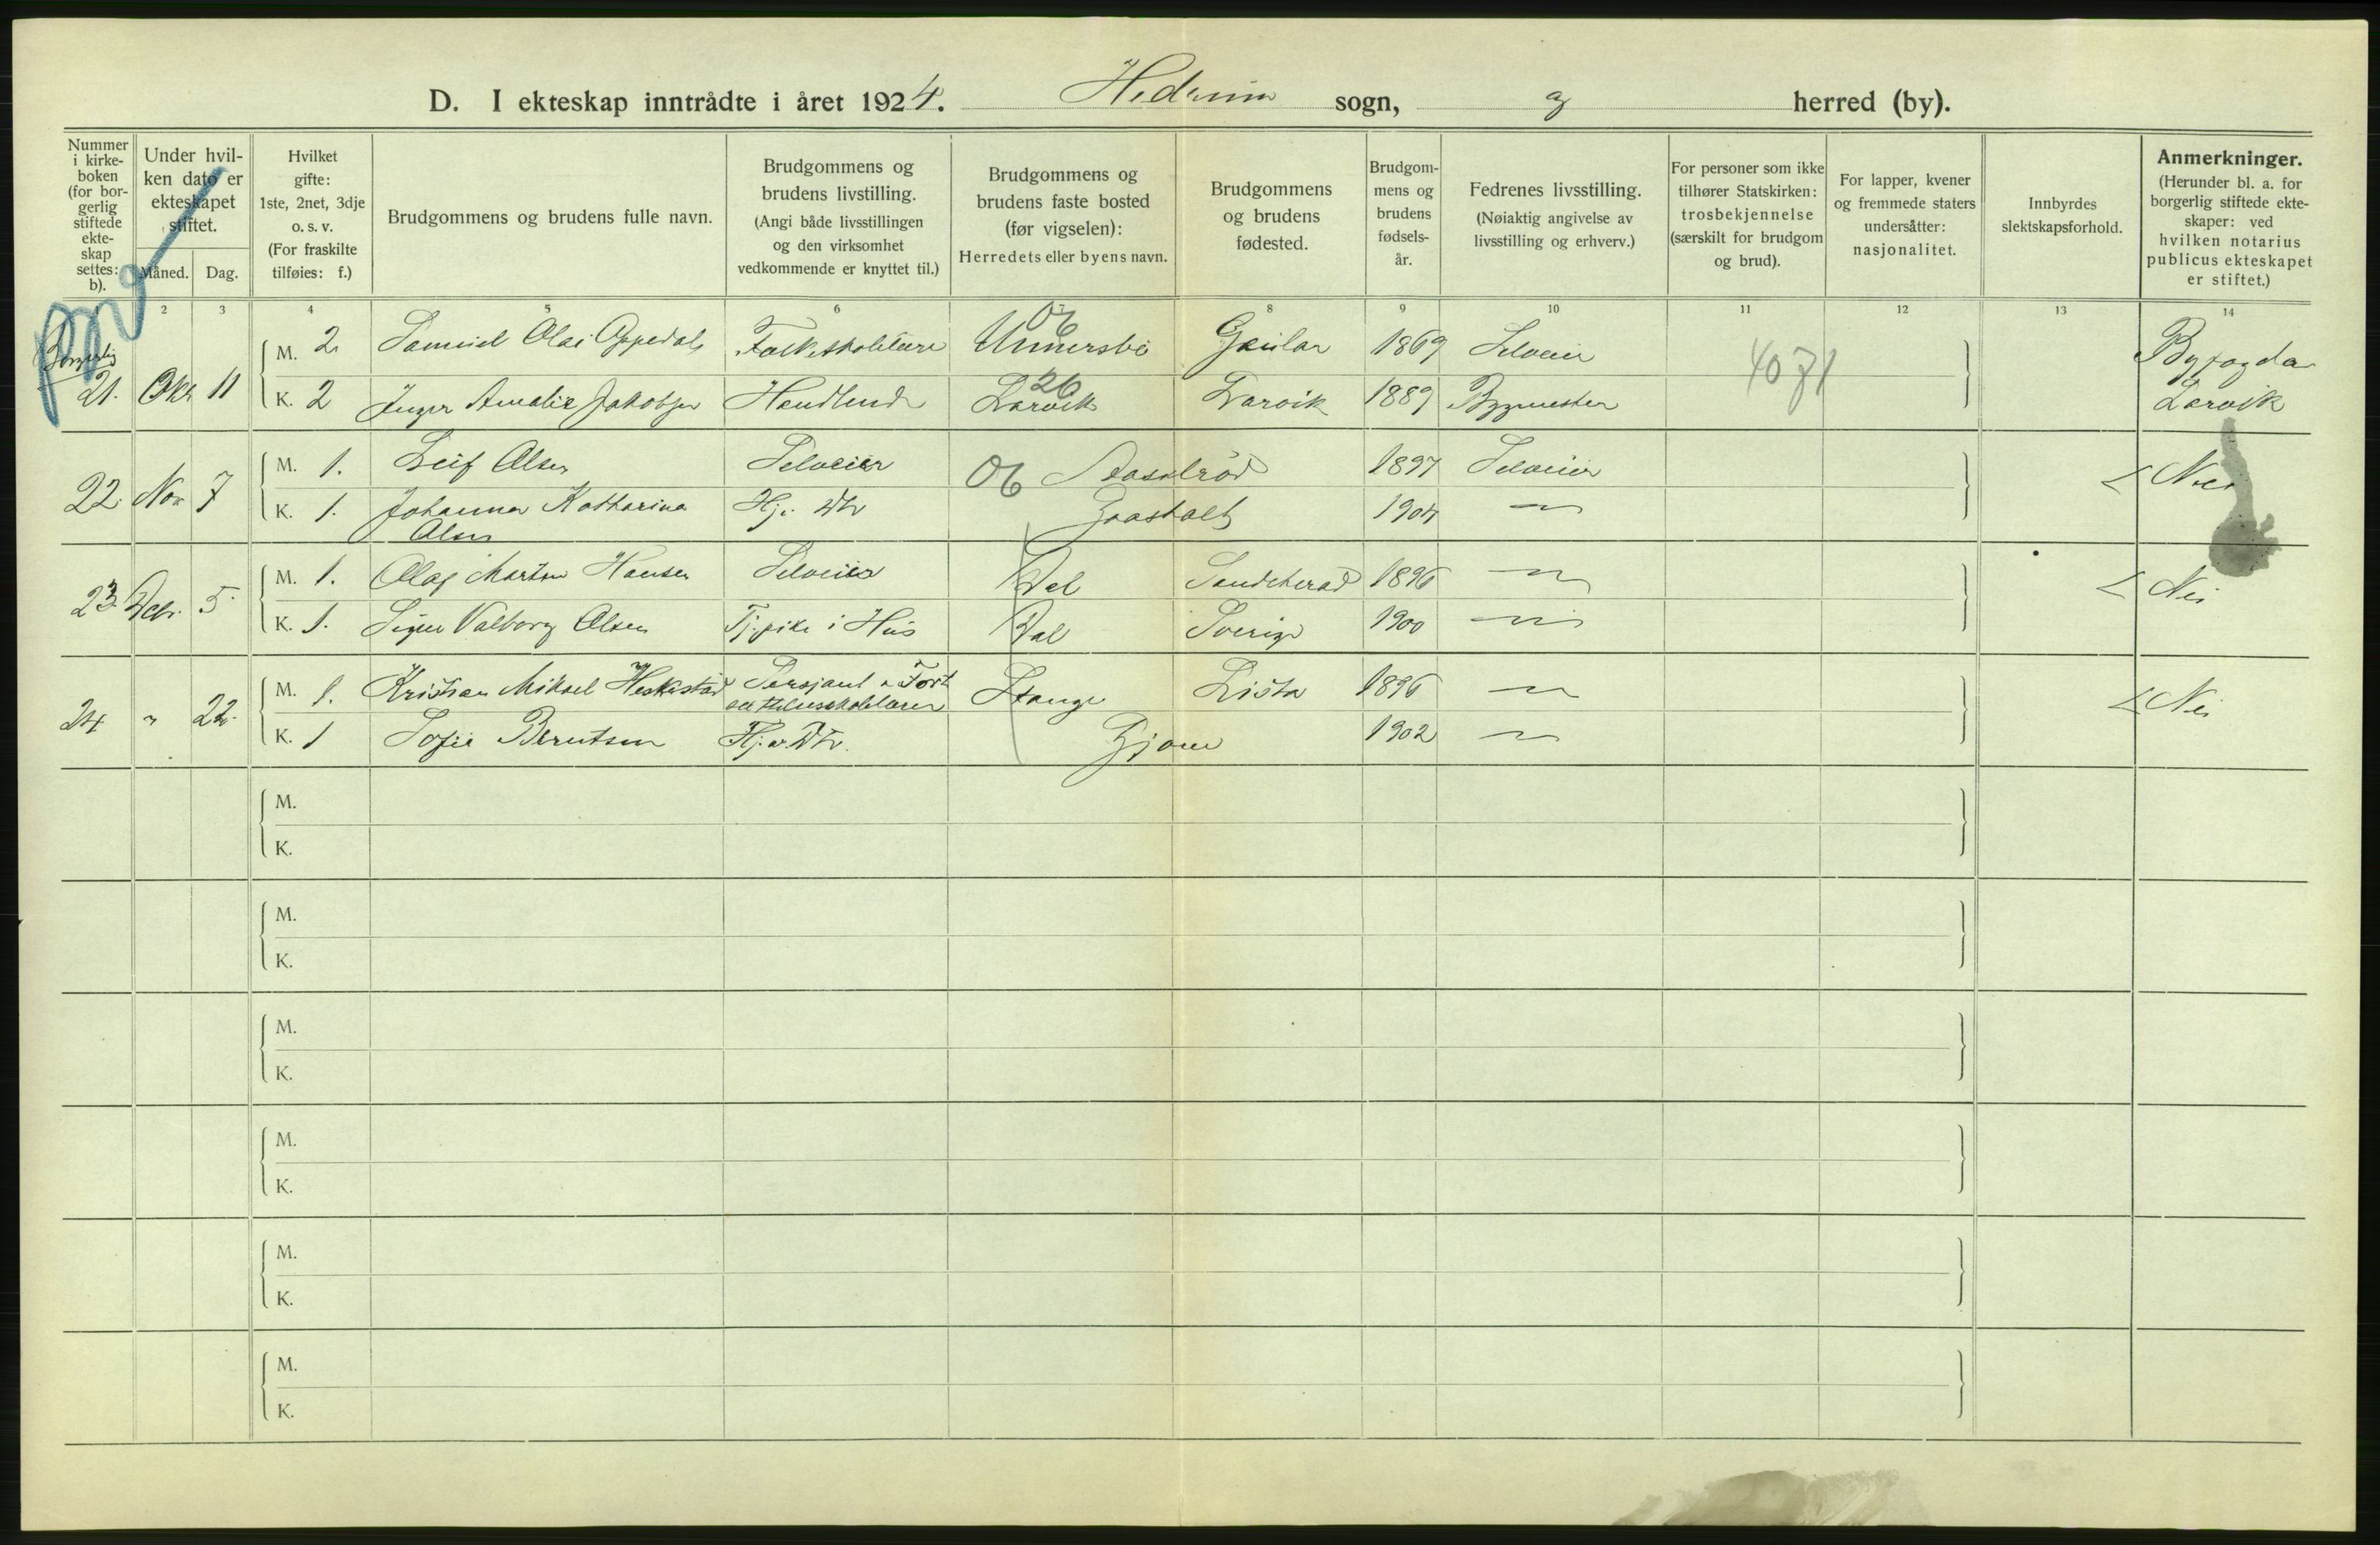 D. I ekteskap inntrådte i året 1924. Hedrum sogn, og herred (by).
Nummer i kirke-boken (for bor-gerlig stiftede ekte-skap settes: b).
Under hvil-ken dato er ekteskapet stiftet.
Måned. Dag.
Hvilket gifte: 1ste, 2net, 3dje o. s. v. (For fraskilte tilføies: f.)
Brudgommens og brudens fulle navn.
Brudgommens og brudens livstilling. (Angi både livsstillingen og den virksomhet vedkommende er knyttet til.)
Brudgommens og brudens faste bosted (før vigselen): Herredets eller byens navn.
Brudgommens og brudens fødested.
Brudgom-mens og brudens fødsels-år.
Fedrenes livsstilling. (Nøiaktig angivelse av livsstilling og erhverv.)
For personer som ikke tilhører Statskirken: trosbekjennelse (særskilt for brudgom og brud).
For lapper, kvener og fremmede staters undersåtter: nasjonalitet.
Innbyrdes slektskapsforhold.
Anmerkninger. (Herunder bl. a. for borgerlig stiftede ekte-skaper: ved hvilken notarius publicus ekteskapet er stiftet.)
2 3 4 5 6 7 8 9 10 11 12 13 14
Borgerlig
M. 2 Samuel Olai Oppedal Folkeskolelærer Gaular 1869 Selveier Byfogda
21. Okt 11 K. 2 Inger Amalie Jakobsen Handlende Larvik 26 Larvik 1889 Bygmester 4071 Larvik
M. 1. Leif Olsen Selveier 1897 Selveier
22. Nov 7 Nei
K. 1. Johanna Katharina Olsen Hj. 1904
M. 1. Olaf Morten Hansen Selveier Sandeherad 1896
23 5 Nei
K. 1. Signe Valborg Olsen Tj. pike i Hus Sverige 1900
M. 1. Kristian Mikael Heskestad Sersjant Stange Lista 1896
24 " 22. Nei
K. 1 Sofie Berntsen 1902
M.
K.
M.
K.
M.
K.
M.
K.
M.
K.
M.
K.